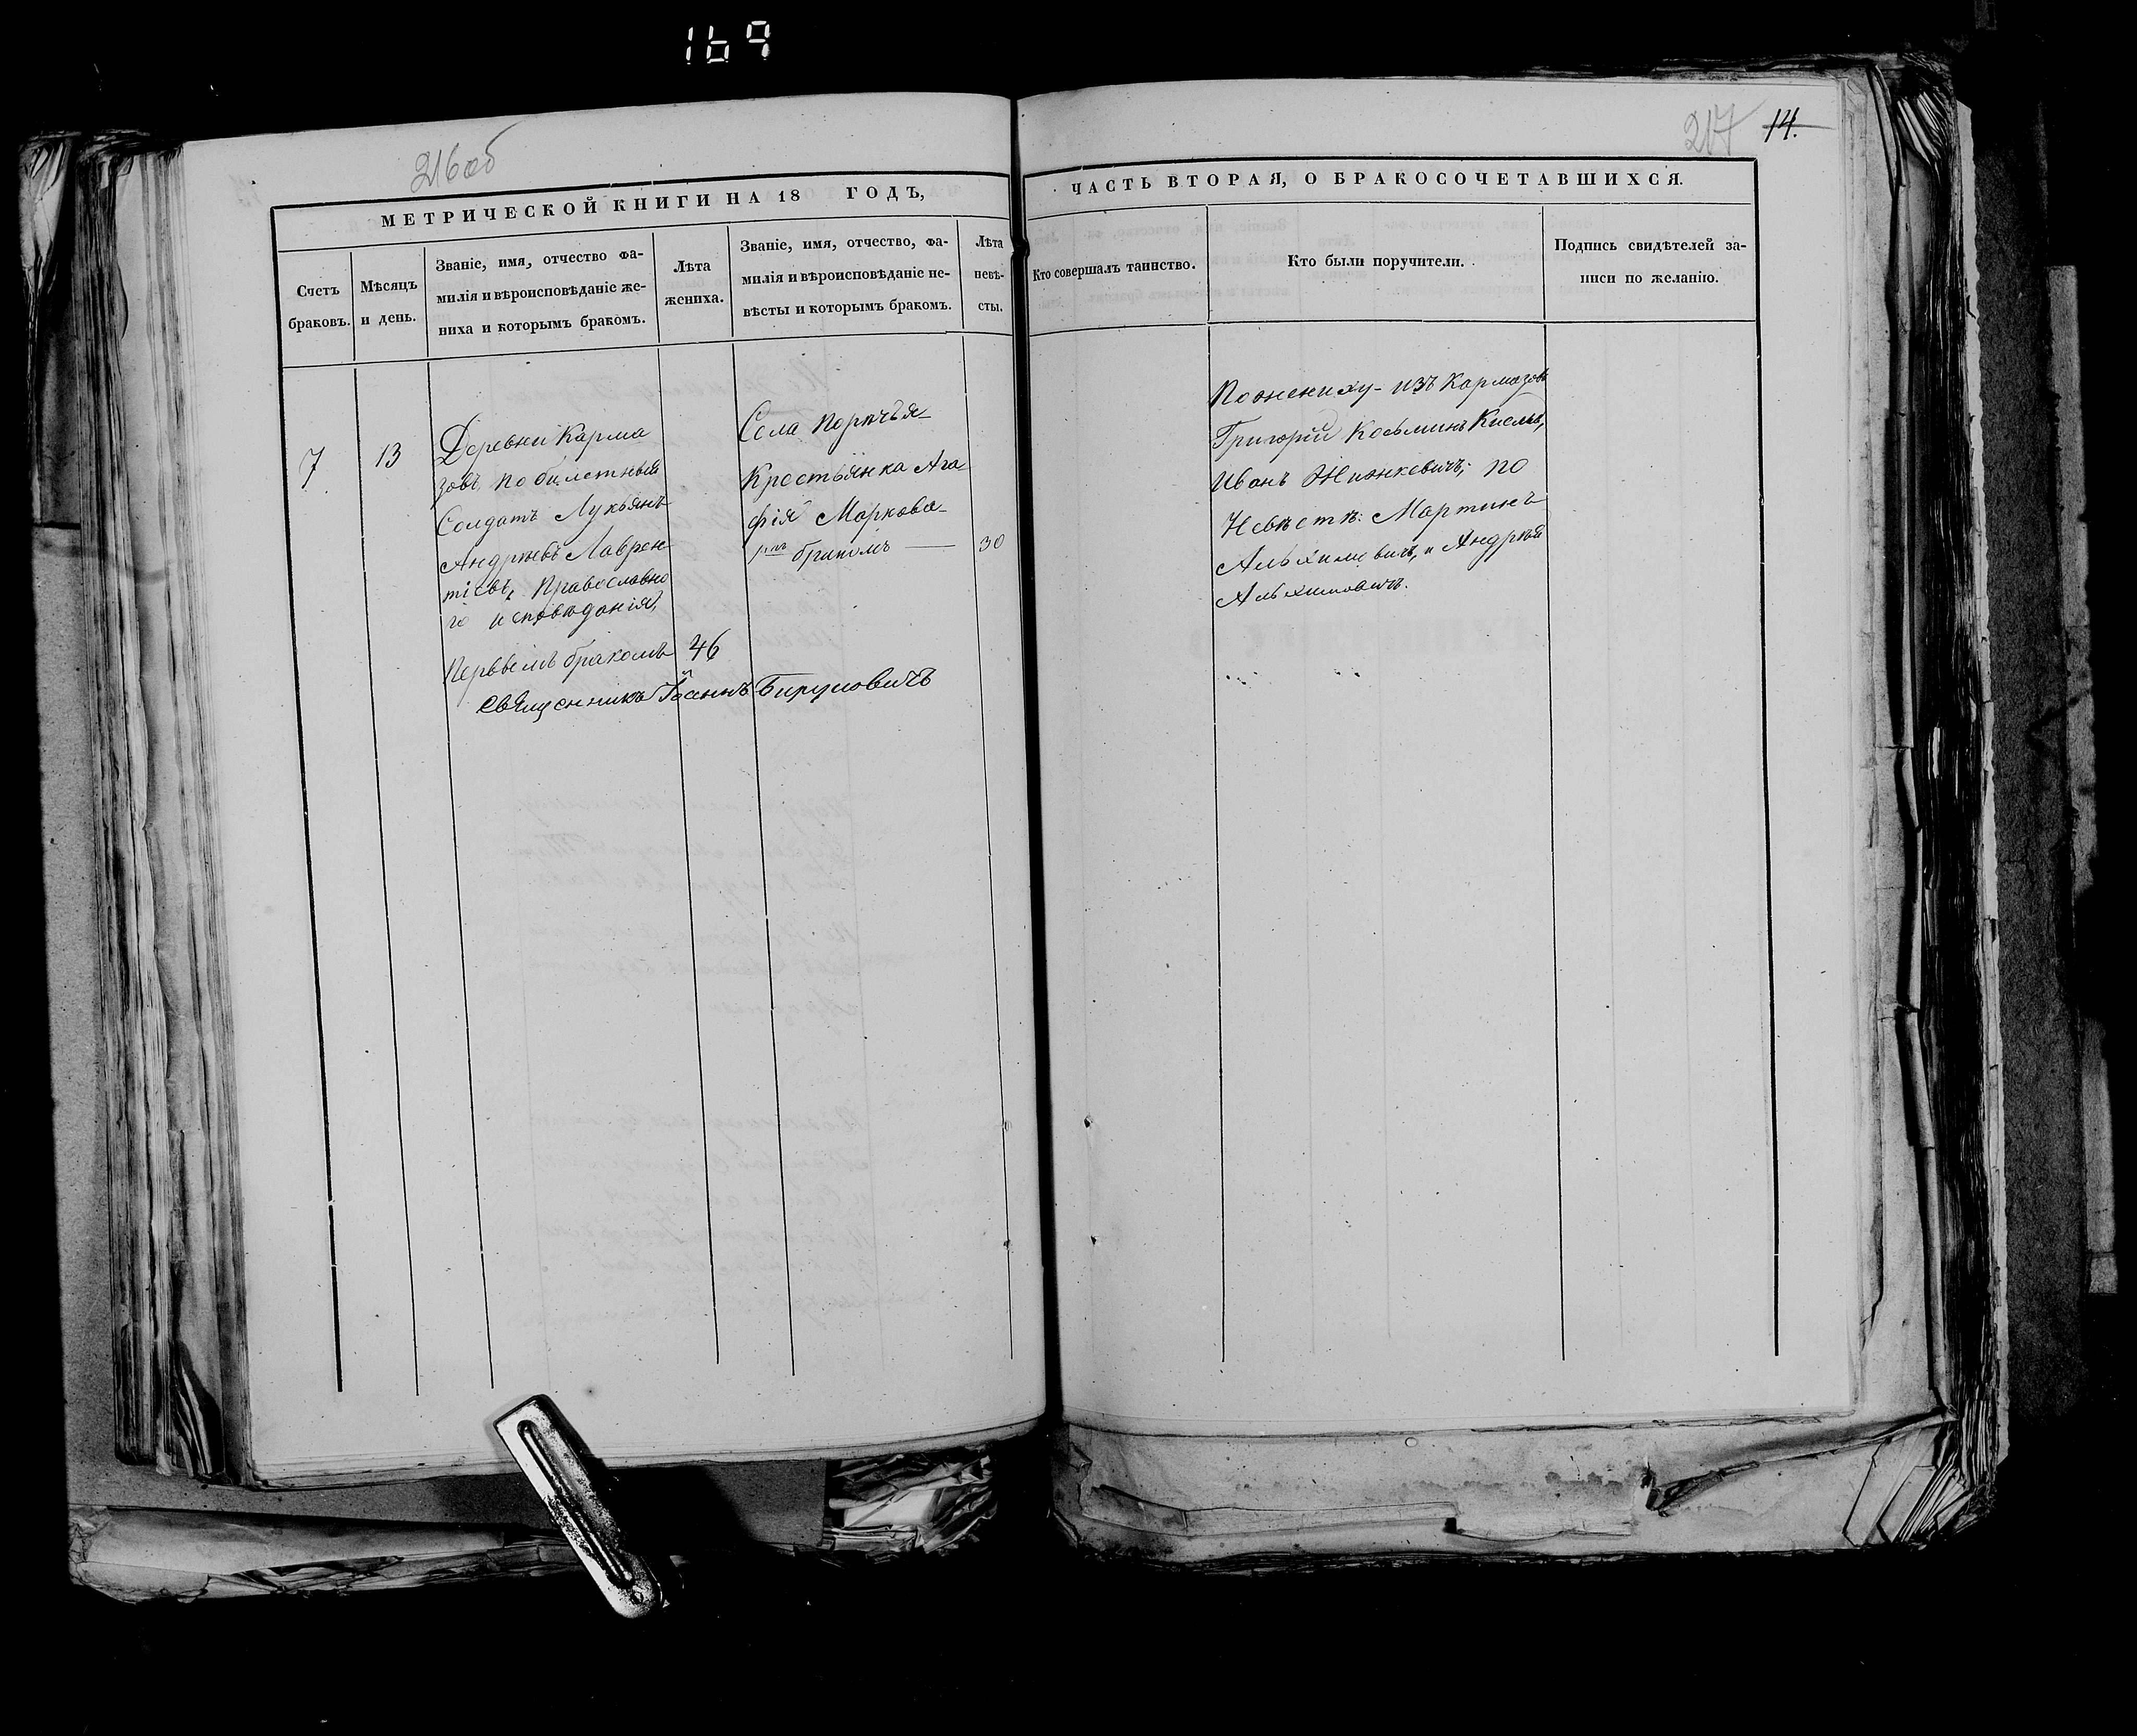 169
216 об
217 14.
МЕТРИЧЕСКОЙ КНИГИ НА 18 ГОДЪ,
Счетъ браковъ.
Мѣсяцъ и день.
Званіе, имя, отчество фа-
милія и вѣроисповѣданіе же-
ниха и которымъ бракомъ.
Лѣта жениха.
Званіе, имя, отчество, фа-
милія и вѣроисповѣданіе не-
вѣсты и которымъ бракомъ.
Лѣта
невѣ-
сты.
7
13
Деревни Карма
зовъ, побилетный
Солдатъ Лукьянъ
Андреевъ Лаврен
тіевъ, Православно
го исповѣданія,
Первымъ бракомъ
46
Села Порѣчья
Крестьянка Ага
фія Маркова
бракомъ —
30
Священникъ Іоаннъ Бируковичъ
ЧАСТЬ ВТОРАЯ, О БРАКОСОЧЕТАВШИХСЯ.
Кто совершалъ таинство.
Кто были поручители.
Подпись свидѣтелей за-
писи по желанію.
По жениху - изъ Кармазовъ
Григорій Косьминъ
Иванъ по
Невѣстѣ: Мартинъ
Альхимовичъ, и Андрей
Альхимовичъ.